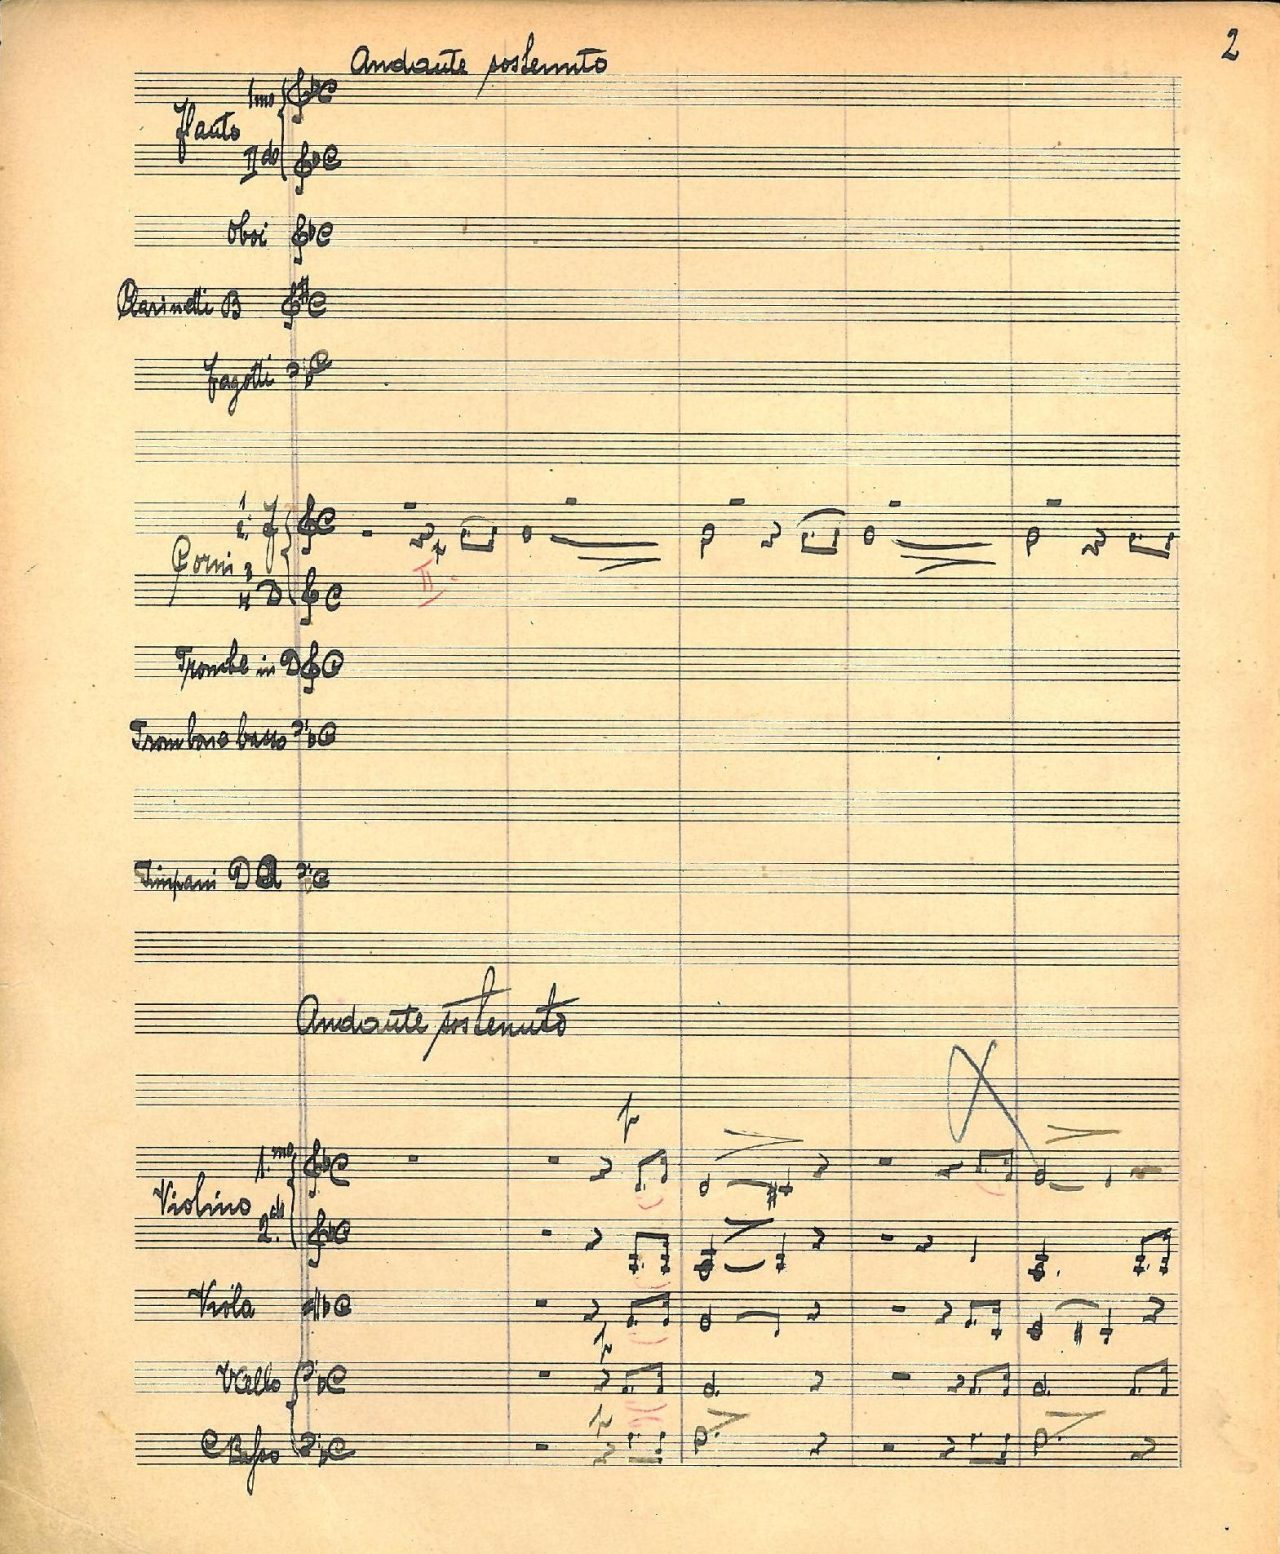 2
Andante sostenuto
Flauto
Imo
IIdo
Oboi
Clarinetti B
Fagotti
Corni
1.
2. F
3
4 D
p
II.
Trombe in D
Trombone basso
Timpani D A
Andante sostenuto
p
Violino
1.mo
2.do
Viola
p
VCello
p
C Basso